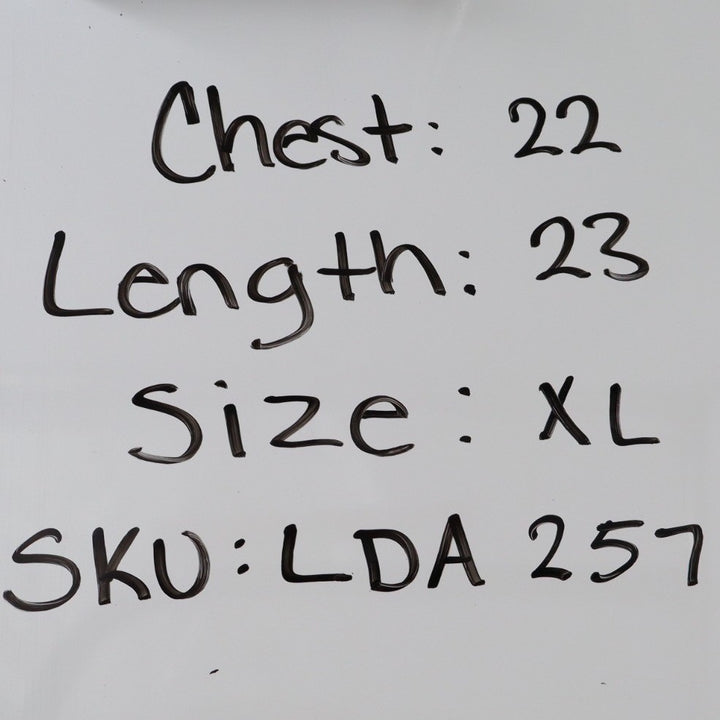 Chest: 22
Length: 23
Size: XL
SKU: LDA 257